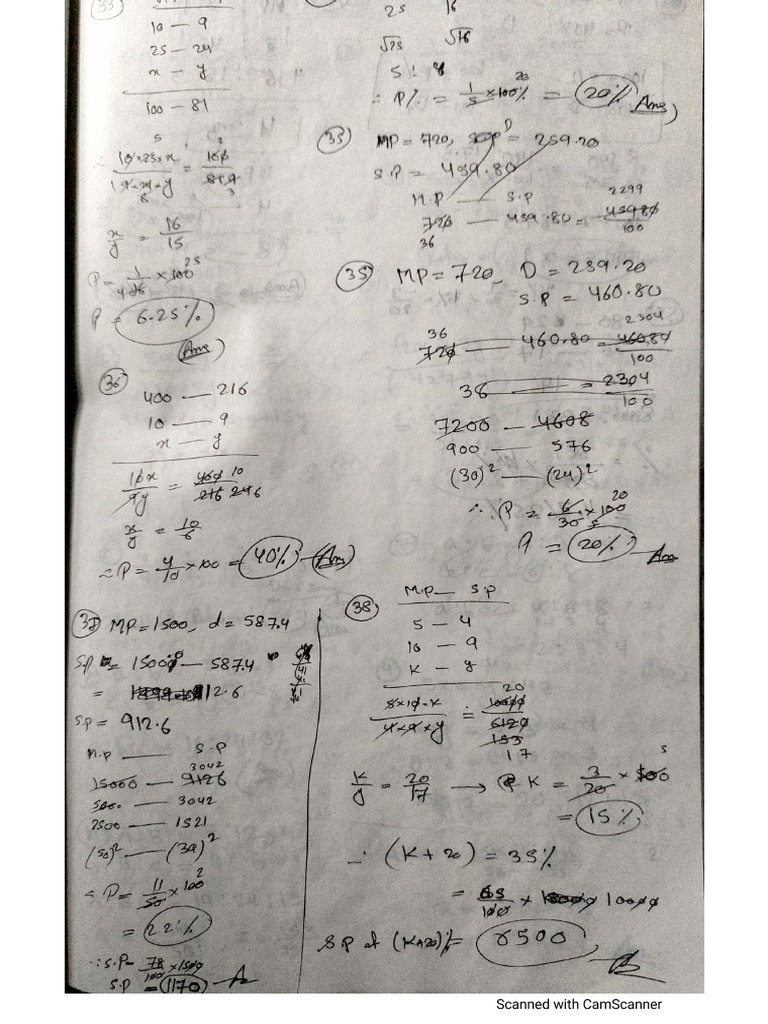 33
10 — 9
25 — 24
x — y
100 — 81
x/y = 16/15
P = 1/16 × 100
P = 6.25%
(Ans)
36
400 — 216
10 — 9
x — y
10x/9y = 400/216
x/y = 10/6
∴ P = 4/10 × 100 = 40% (Ans)
37 MP = 1500, d = 587.4
S.P = 1500.0 — 587.4
= 912.6
S.P = 912.6
M.P — S.P
15000 — 9126
5000 — 3042
2500 — 1521
(50)² — (39)²
∴ P = 11/50 × 100
= 22%
∴ S.P = 78/100 × 1500
S.P = 1170
25 16
√25 √16
5 : 4
∴ P% = 1/5 × 100% = 20% Ans
35 MP = 720, D = 259.20
S.P = 459.80
M.P — S.P
720 — 459.80 = 45980/100
36
2299
35 MP = 720, D = 259.20
S.P = 460.80
36
2304
720 — 460.80 = 46080/100
36 — = 2304/100
7200 — 4608
900 — 576
(30)² — (24)²
∴ P = 6/30 × 100
P = 20% Ans
38 M.P — S.P
5 — 4
10 — 9
K — y
5×10×K/4×9×y = 10000/6120
153
20
17
K/y = 20/17 → K = 3/20 × 100
= 15%
∴ (K + 20) = 35%
= 65/100 × 10000
S.P at (K+20)% = 6500
Scanned with CamScanner